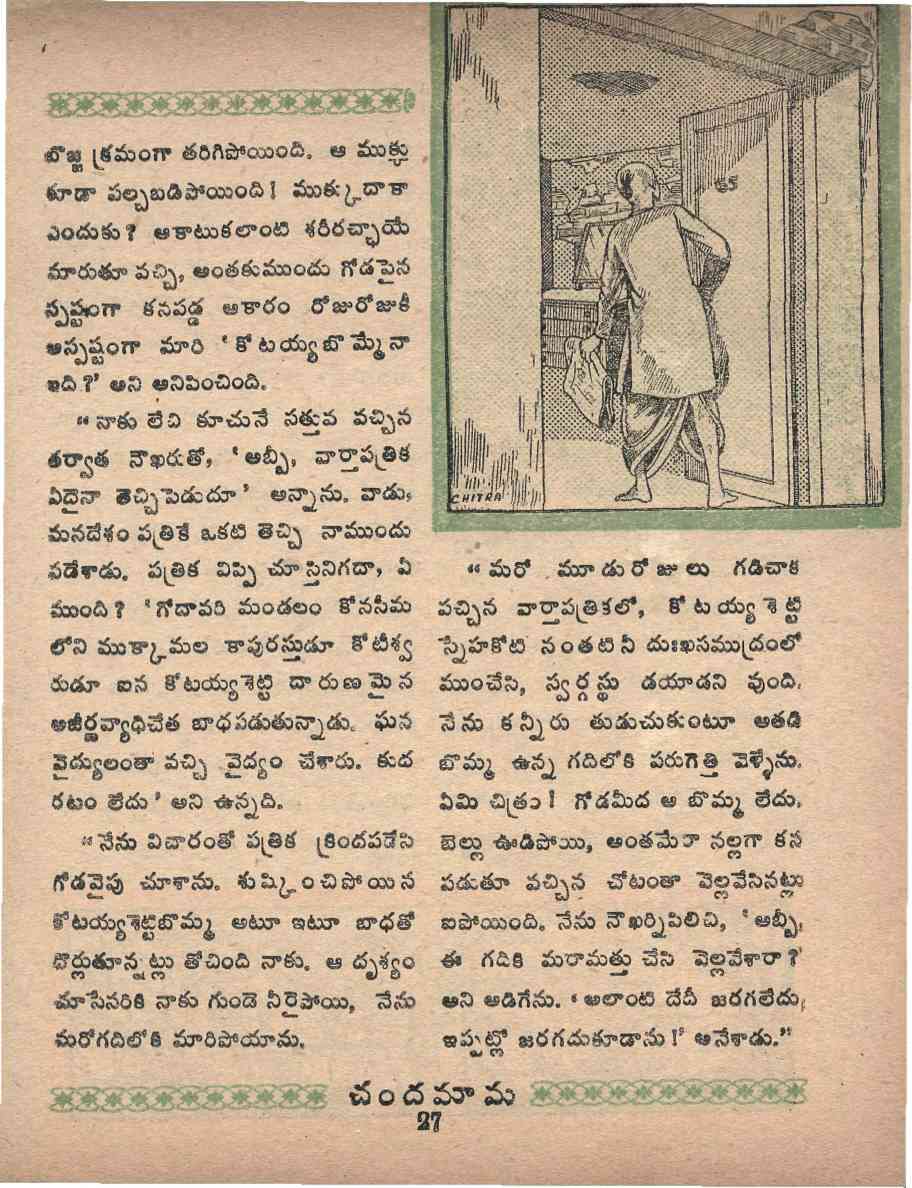 బొజ్జ క్రమంగా తరిగిపోయింది. ఆ ముక్కు
కూడా పల్చబడిపోయింది! ముక్కుదాకా
ఎందుకు? ఆకాటుకలాంటి శరీరచ్ఛాయే
మారుతూ వచ్చి, అంతకుముందు గోడపైన
స్పష్టంగా కనపడ్డ ఆకారం రోజురోజుకీ
అస్పష్టంగా మారి ‘కోటయ్యబొమ్మేనా
ఇది?’ అని అనిపించింది.
“నాకు లేచి కూచునే సత్తువ వచ్చిన
తర్వాత నౌఖరుతో, ‘అబ్బీ, వార్తాపత్రిక
ఏదైనా తెచ్చిపెడుదూ’ అన్నాను. వాడు,
మనదేశం పత్రికే ఒకటి తెచ్చి నాముందు
పడేశాడు. పత్రిక విప్పి చూస్తినిగదా, ఏ
ముంది? ‘గోదావరి మండలం కోనసీమ
లోని ముక్కామల కాపురస్తుడూ కోటీశ్వ
రుడూ ఐన కోటయ్యశెట్టి దారుణమైన
అజీర్ణవ్యాధిచేత బాధపడుతున్నాడు. ఘన
వైద్యులంతా వచ్చి వైద్యం చేశారు. కుద
రటం లేదు’ అని ఉన్నది.
“నేను విచారంతో పత్రిక క్రిందపడేసి
గోడవైపు చూశాను. శుష్కించిపోయిన
కోటయ్యశెట్టిబొమ్మ అటూ ఇటూ బాధతో
దొర్లుతూన్నట్లు తోచింది నాకు. ఆ దృశ్యం
చూసేసరికి నాకు గుండె నీరైపోయి, నేను
మరోగదిలోకి మారిపోయాను.
45
CHITRA
“మరో మూడురోజులు గడిచాక
వచ్చిన వార్తాపత్రికలో, కోటయ్యశెట్టి
స్నేహకోటి నంతటినీ దుఃఖసముద్రంలో
ముంచేసి, స్వర్గస్థు డయాడని వుంది.
నేను కన్నీరు తుడుచుకుంటూ అతడి
బొమ్మ ఉన్న గదిలోకి పరుగెత్తి వెళ్ళేను.
ఏమి చిత్రం! గోడమీద ఆ బొమ్మ లేదు.
బెల్లు ఊడిపోయి, అంతమేరా నల్లగా కన
పడుతూ వచ్చిన చోటంతా వెల్లవేసినట్లు
ఐపోయింది. నేను నౌఖర్నిపిలిచి, ‘అబ్బీ,
ఈ గదికి మరామత్తు చేసి వెల్లవేశారా?’
అని అడిగేను. ‘అలాంటి దేదీ జరగలేదు,
ఇప్పట్లో జరగదుకూడాను!’ అనేశాడు.”
చందమామ
27